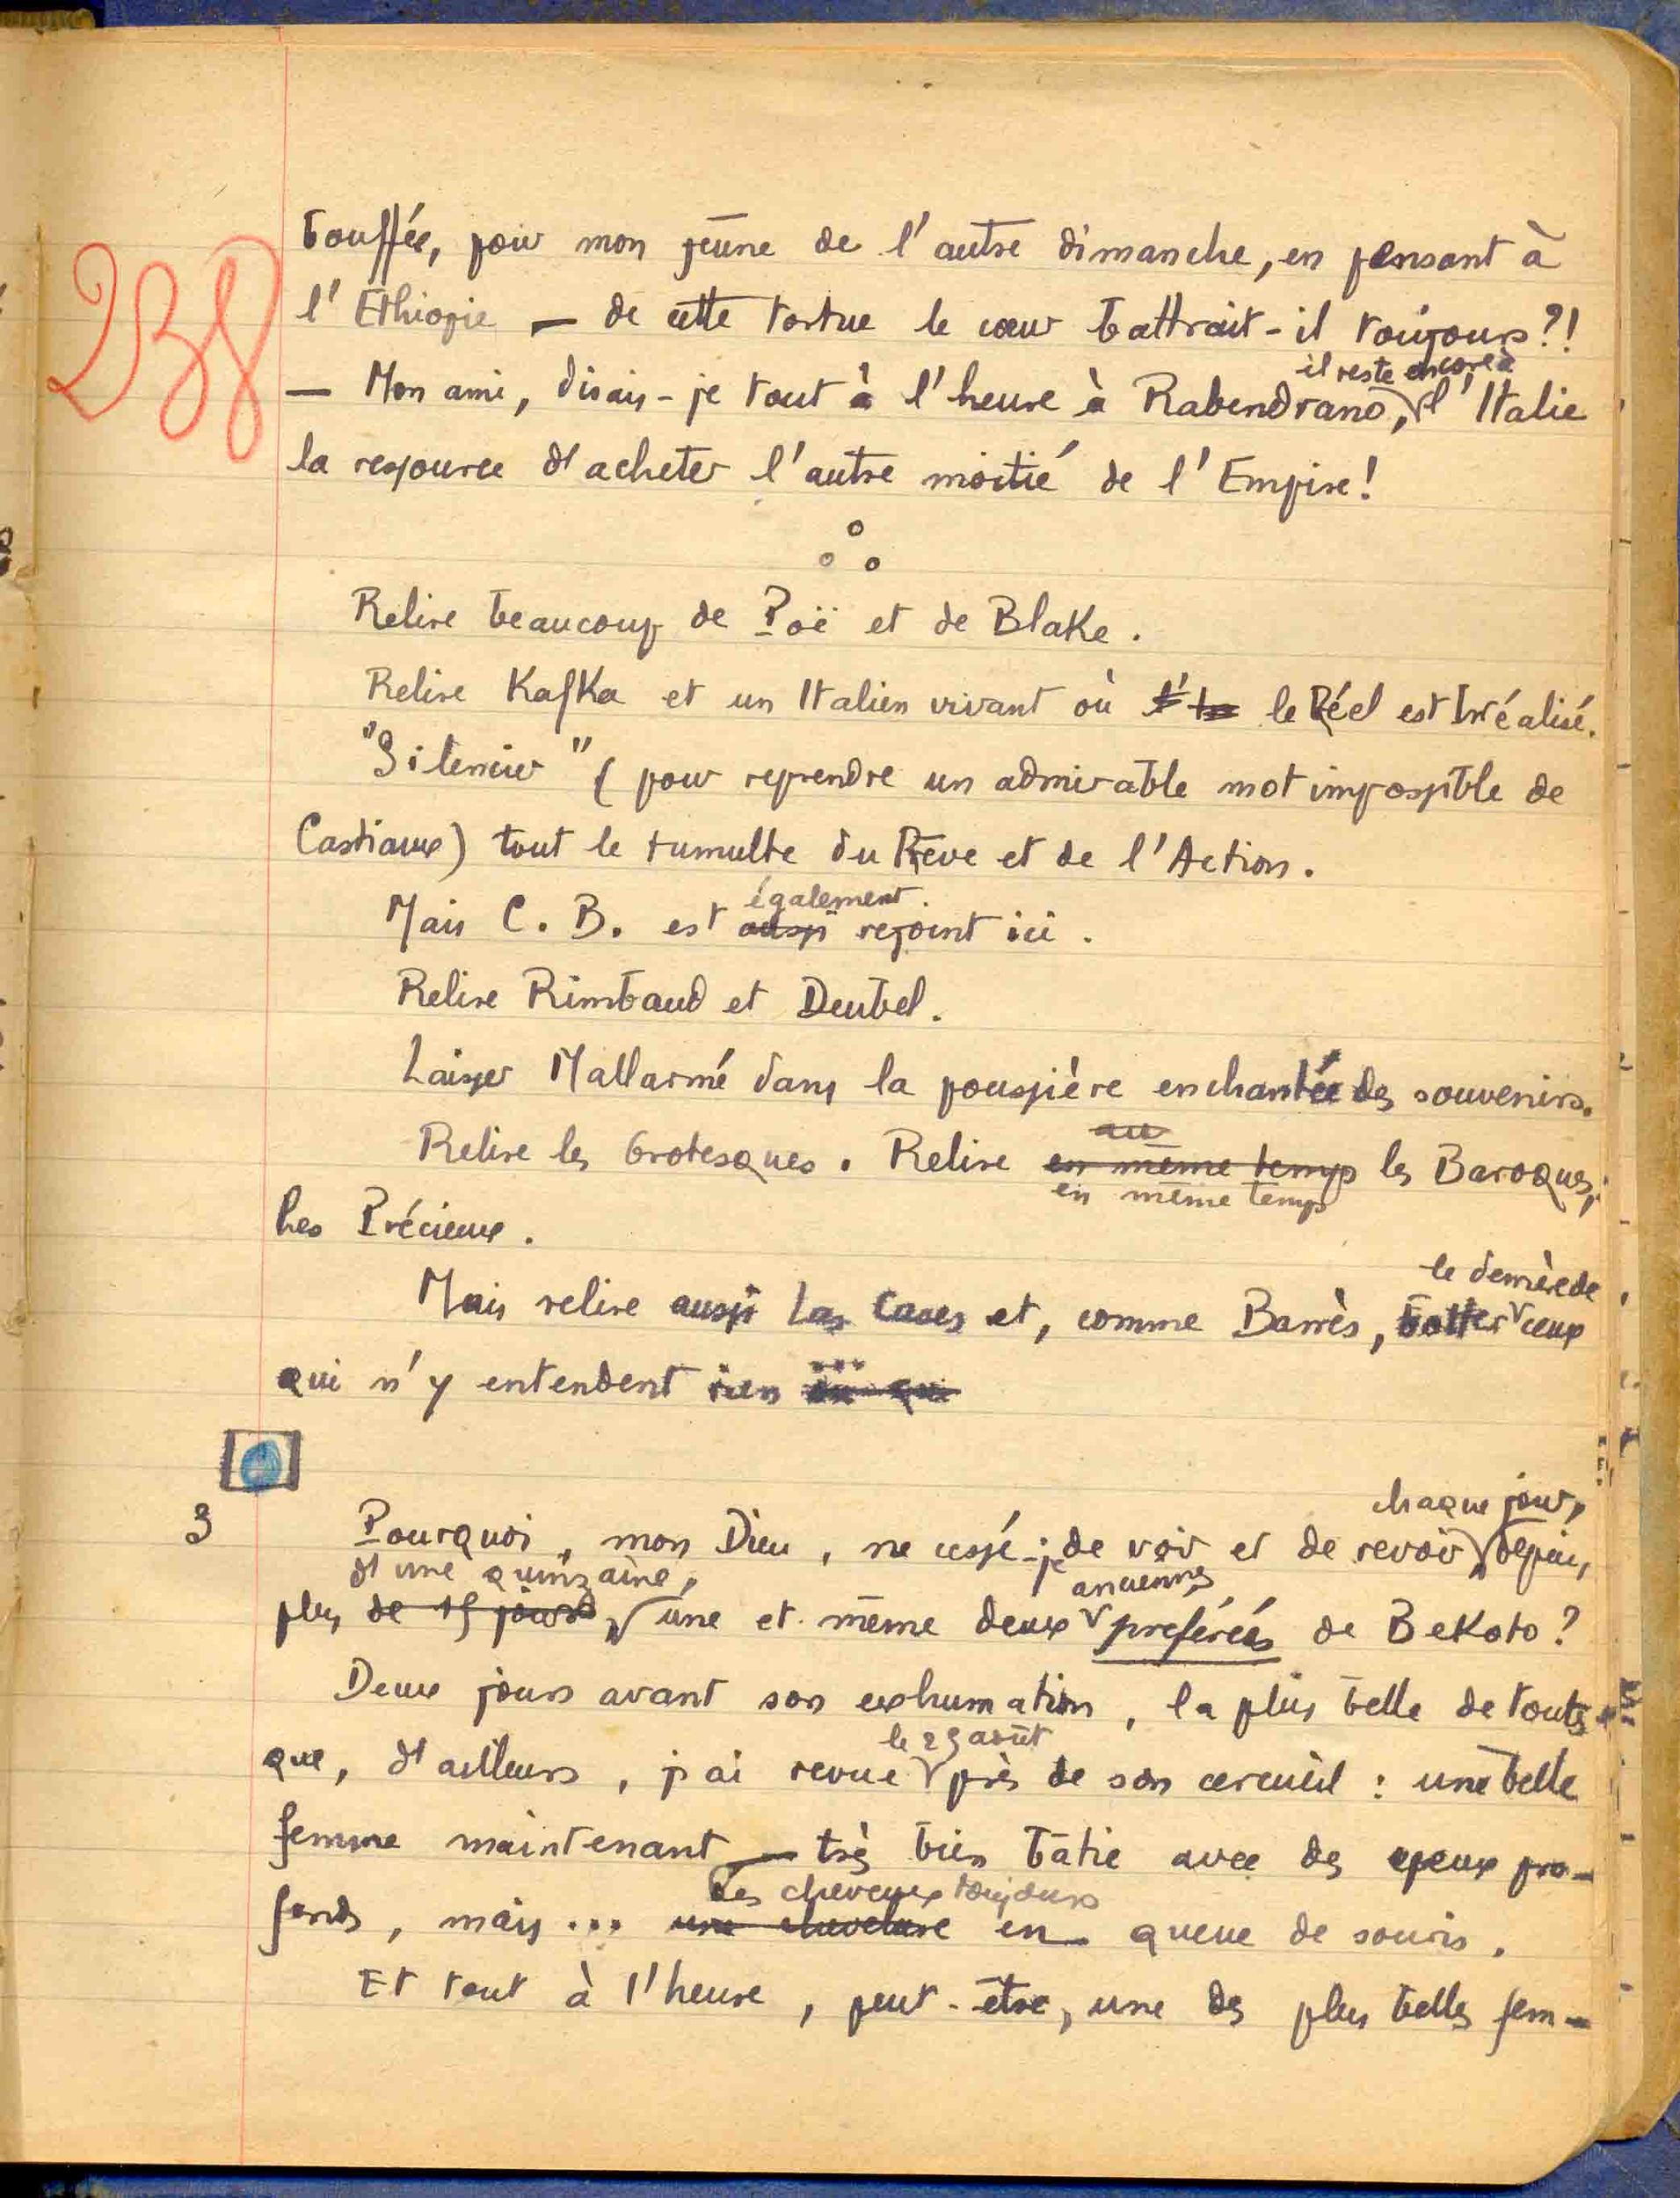 238
bouffée, pour mon jeûne de l'autre dimanche, en pensant à
l'Ethiopie — de cette tortue le cœur battrait-il toujours ?!
il reste encore à
— Mon ami, disais-je tout à l'heure à Rabendrano, l'Italie
la ressource d'acheter l'autre moitié de l'Empire !
Relire beaucoup de Poë et de Blake.
Relire Kafka et un Italien vivant où le Réel est Irréalisé.
"Silencier" (pour reprendre un admirable mot impossible de
Castiaux) tout le tumulte du Rêve et de l'Action.
également
Mais C. B. est aussi rejoint ici.
Relire Rimbaud et Deubel.
Laisser Mallarmé dans la poussière enchantée des souvenirs.
au
Relire les Grotesques. Relire en même temps les Baroques,
en même temps
Les Précieux.
le derrière de
Mais relire aussi Las Cases et, comme Barrès, botter ceux
qui n'y entendent rien ...
chaque jour,
3 Pourquoi, mon Dieu, ne cessé-je de voir et de revoir depuis
d'une quinzaine, anciennes
plus de 15 jours, une et même deux préférées de Bekoto ?
Deux jours avant son exhumation, la plus belle de toutes
le 29 août
que, d'ailleurs, j'ai revue près de son cercueil : une belle
femme maintenant — très bien bâtie avec des yeux pro-
des cheveux toujours
fonds, mais ... une chevelure en queue de souris.
Et tout à l'heure, peut-être, une des plus belles fem-